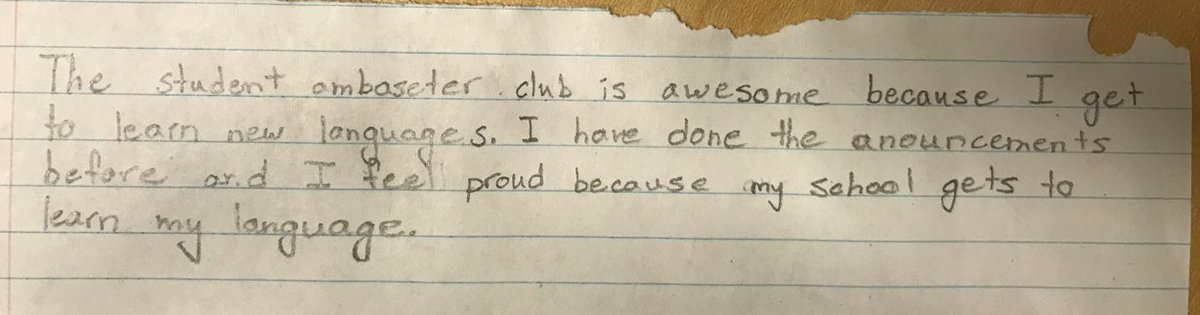 The student ambaseter club is awesome because I get
to learn new languages. I have done the anouncements
before and I feel proud because my school gets to
learn my language.